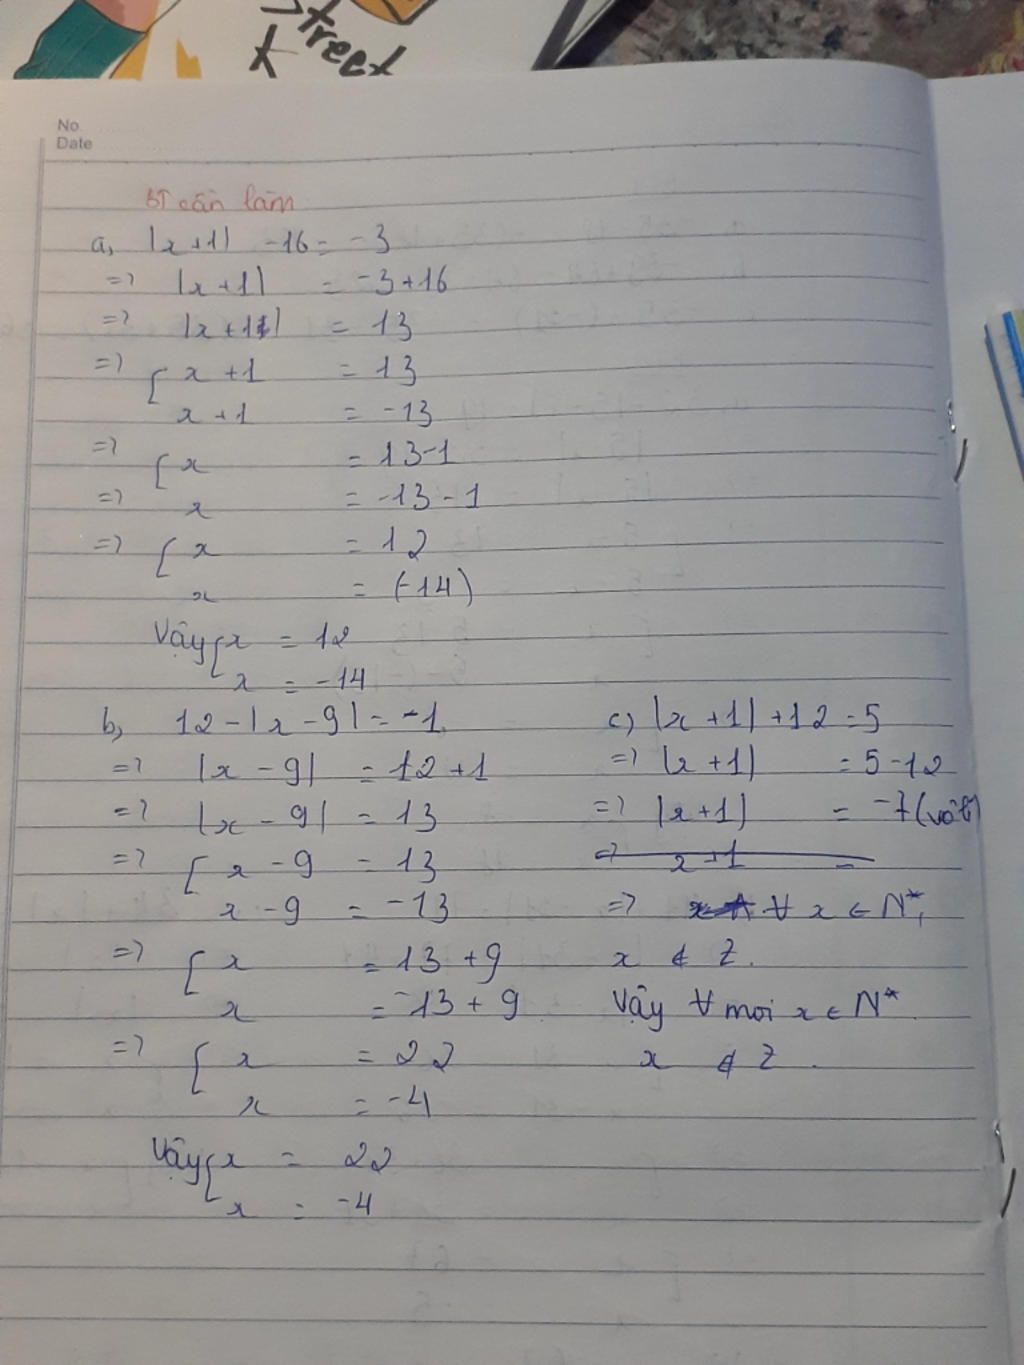 Street
No
Date
BT cần làm
a, |x+1| -16 = -3
=> |x+1| = -3+16
=> |x+1| = 13
=> [ x+1 = 13
x+1 = -13
=> [ x = 13-1
=> x = -13-1
=> [ x = 12
x = (-14)
Vậy [ x = 12
x = -14
b, 12-|x-9| = -1
=> |x-9| = 12+1
=> |x-9| = 13
=> [ x-9 = 13
x-9 = -13
=> [ x = 13+9
x = -13+9
=> [ x = 22
x = -4
Vậy [ x = 22
x = -4
c) |x+1|+12=5
=> |x+1| = 5-12
=> |x+1| = -7 (vô lí)
=> x+1 =
=> ∀ x ∈ N*,
x ∉ Z.
Vậy ∀ mọi x ∈ N*
x ∉ Z.